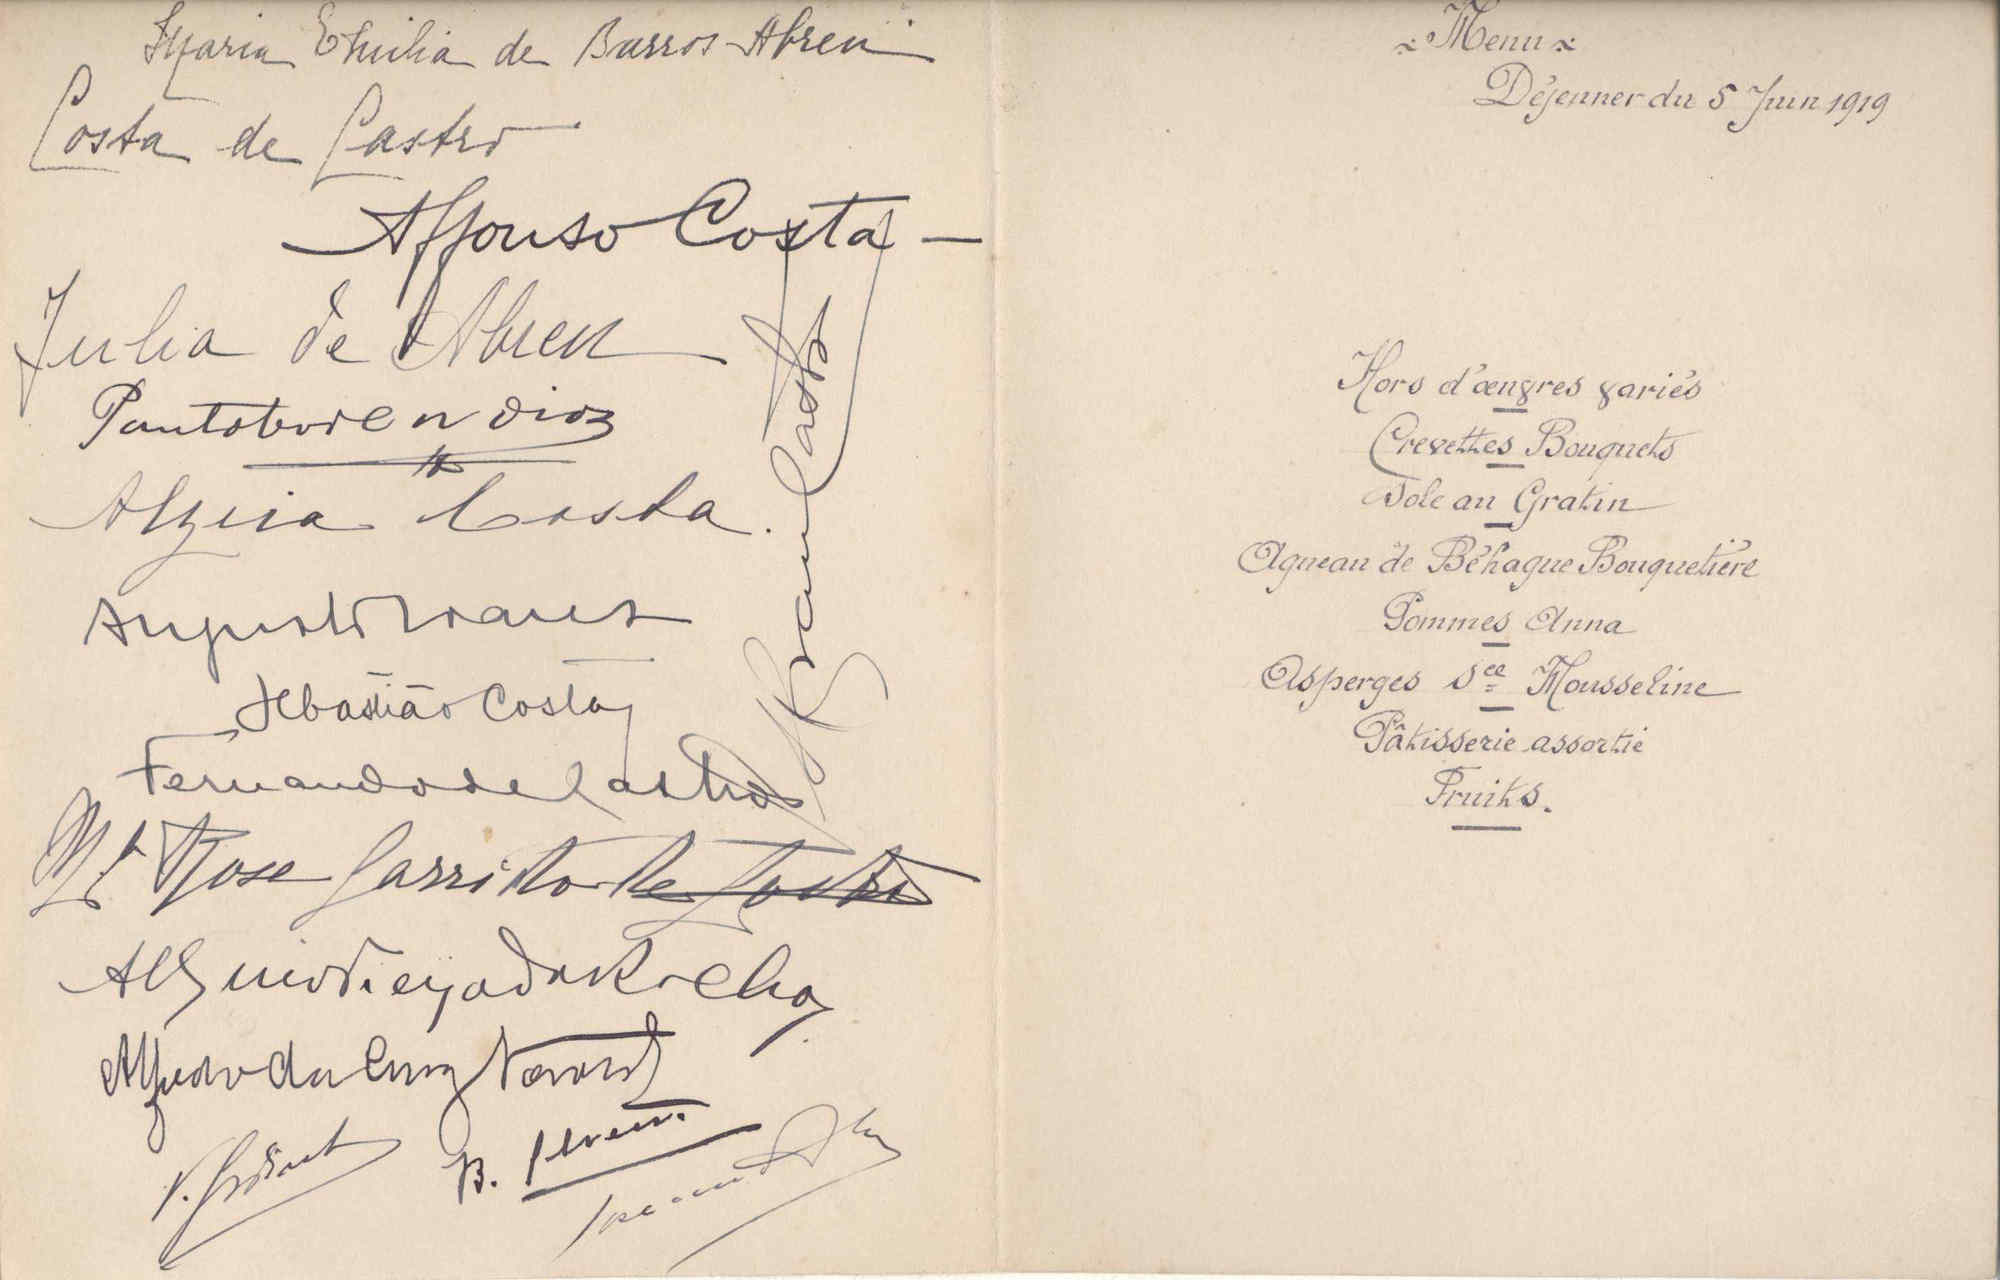 Maria Emilia de Barros Abreu
Costa de Castro
Affonso Costa
Julia de Abreu
Alzira Costa.
Augusto
Sebastião Costa
Fernando de Castro
Mª José Garrido de Castro
da Rocha
Alfredo da Cruz
B.
Menu
Déjeuner du 5 Juin 1919
Hors d'œuvres variés
Crevettes Bouquets
Sole au Gratin
Agneau de Béhague Bouquetière
Pommes Anna
Asperges Sce Mousseline
Pâtisserie assortie
Fruits.